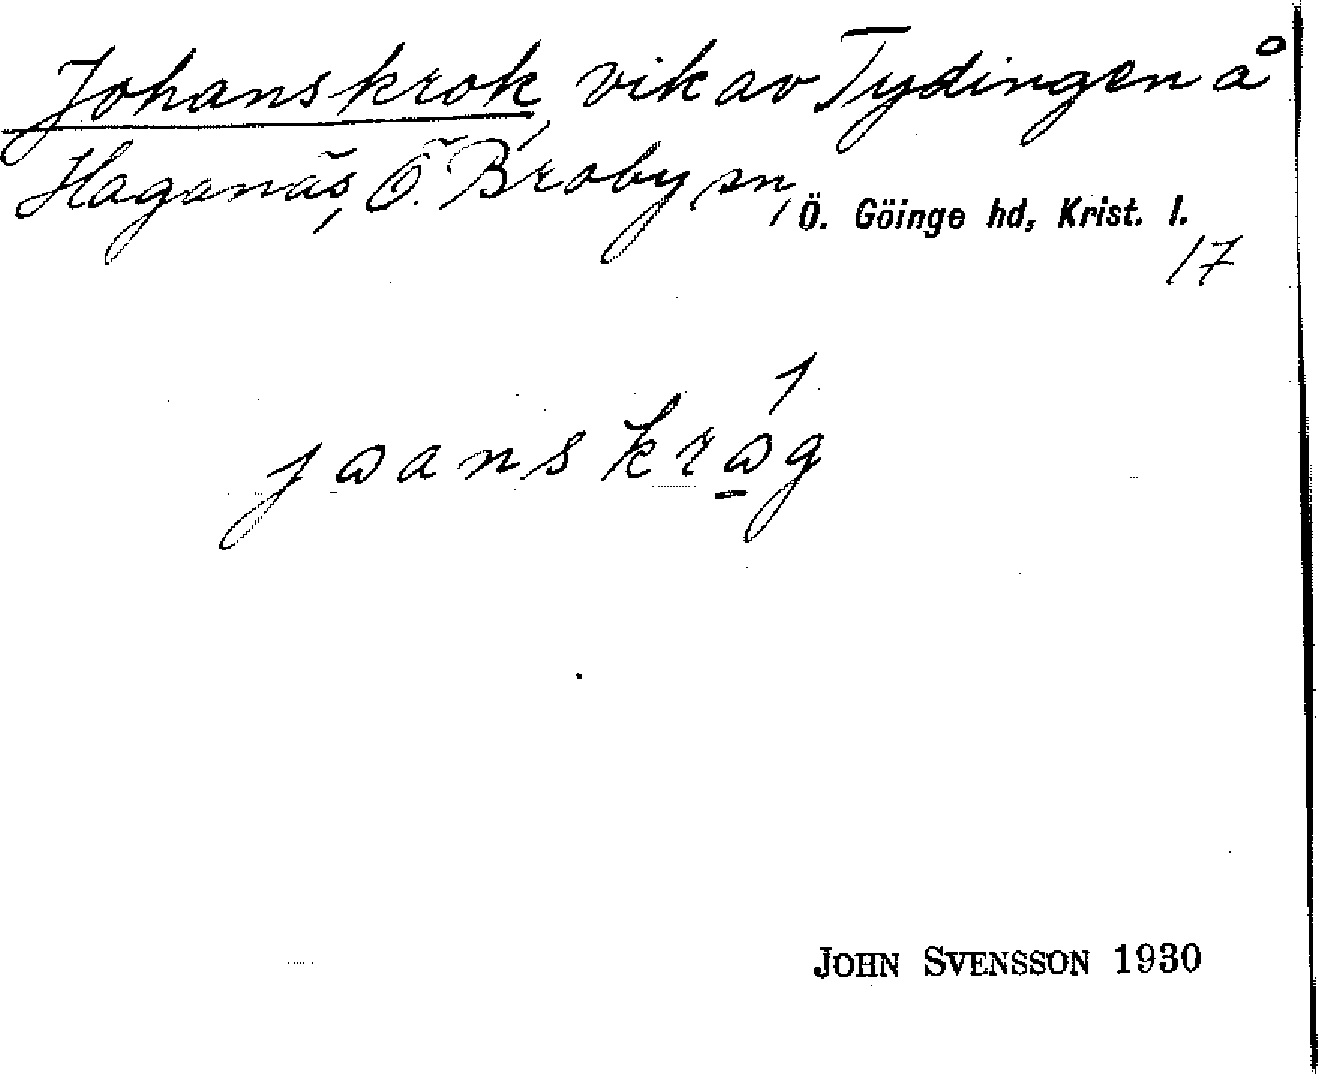 Johanskrok, vik av Tydingen å
Haganäs, Ö. Broby sn, Ö. Göinge hd, Krist. l.
17
jɷanskrɷ́g
JOHN SVENSSON 1930